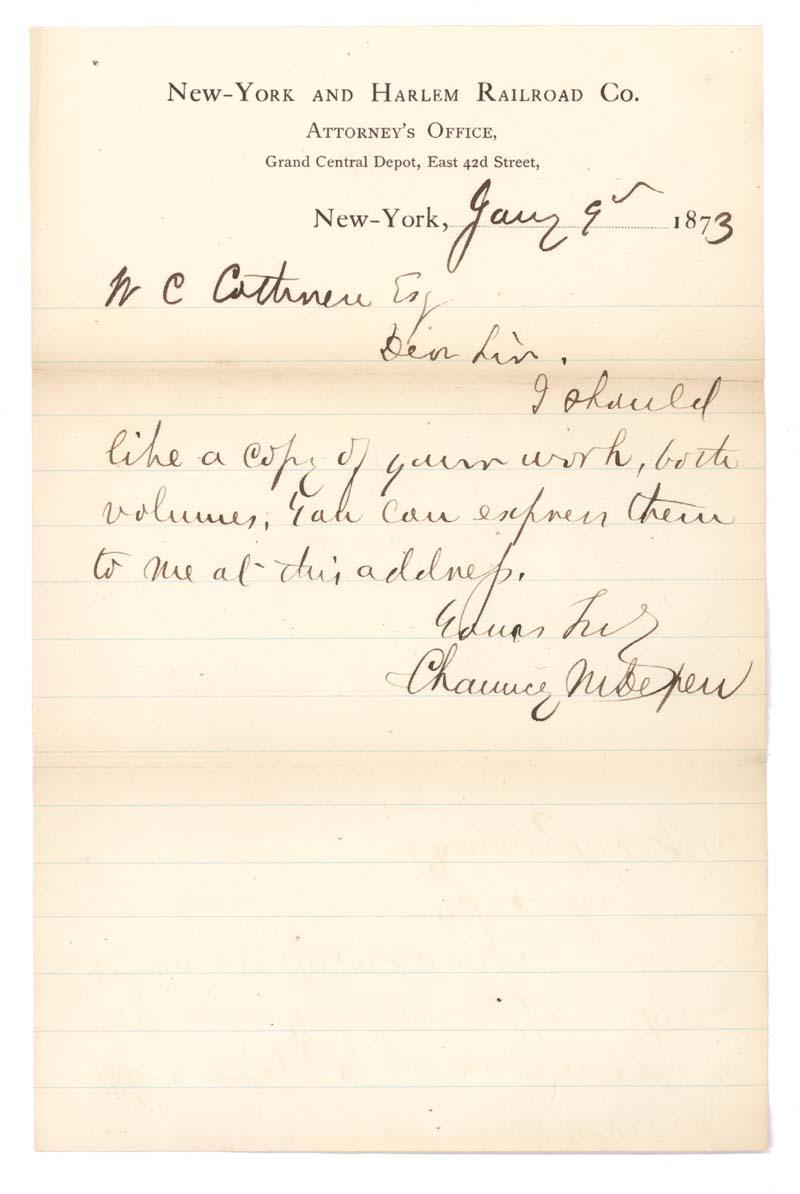 New-York and Harlem Railroad Co.
Attorney's Office,
Grand Central Depot, East 42d Street,
New-York, Jany 9 1873
W C Cothren Esq
Dear Sir.
I should
like a copy of your work, both
volumes, You can express them
to me at this address.
Yours Truly
Chauncey M Depew